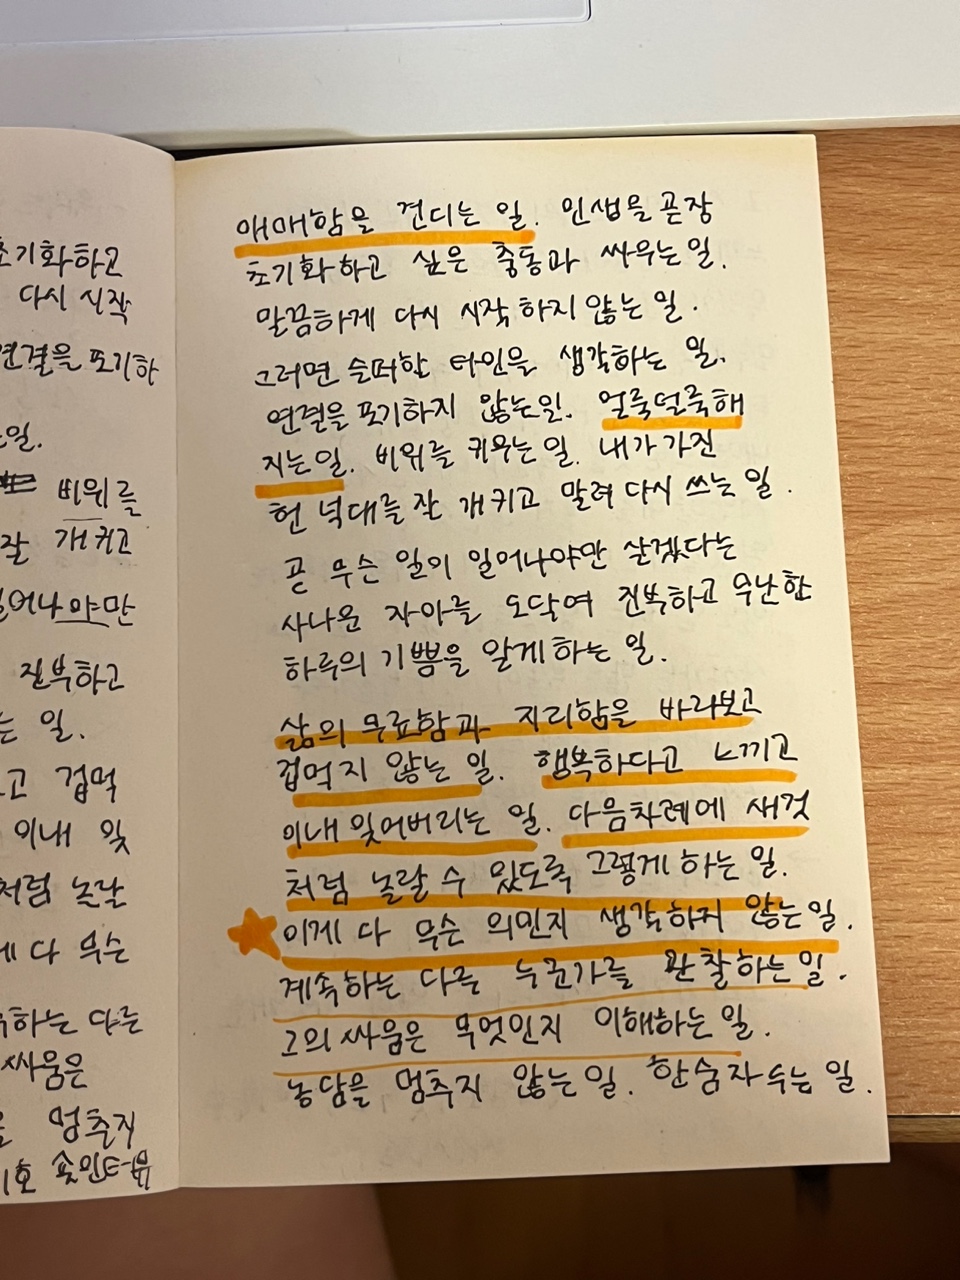 초기화하고
다시 시작
연결을 포기하
는일.
비위를
잘 개키고
일어나야만
진부하고
는 일.
고 겁먹
이내 잊
처럼 놀랄
게 다 무슨
하는 다른
싸움은
멈추지
애매함을 견디는 일. 인생을 곧장
초기화하고 싶은 충동과 싸우는 일.
말끔하게 다시 시작하지 않는 일.
그러면 슬퍼할 타인을 생각하는 일.
연결을 포기하지 않는일. 얼룩덜룩해
지는일. 비위를 키우는 일. 내가 가진
헌 넉대를 잘 개키고 말려 다시 쓰는 일.
곧 무슨 일이 일어나야만 살겠다는
사나운 자아를 도닥여 진부하고 무난한
하루의 기쁨을 알게 하는 일.
삶의 무료함과 지리함을 바라보고
겁먹지 않는 일. 행복하다고 느끼고
이내 잊어버리는 일. 다음차례에 새것
처럼 놀랄 수 있도록 그렇게 하는 일.
이게 다 무슨 의민지 생각하지 않는일.
계속하는 다른 누군가를 관찰하는일.
그의 싸움은 무엇인지 이해하는 일.
농담을 멈추지 않는일. 한숨자 두는 일.